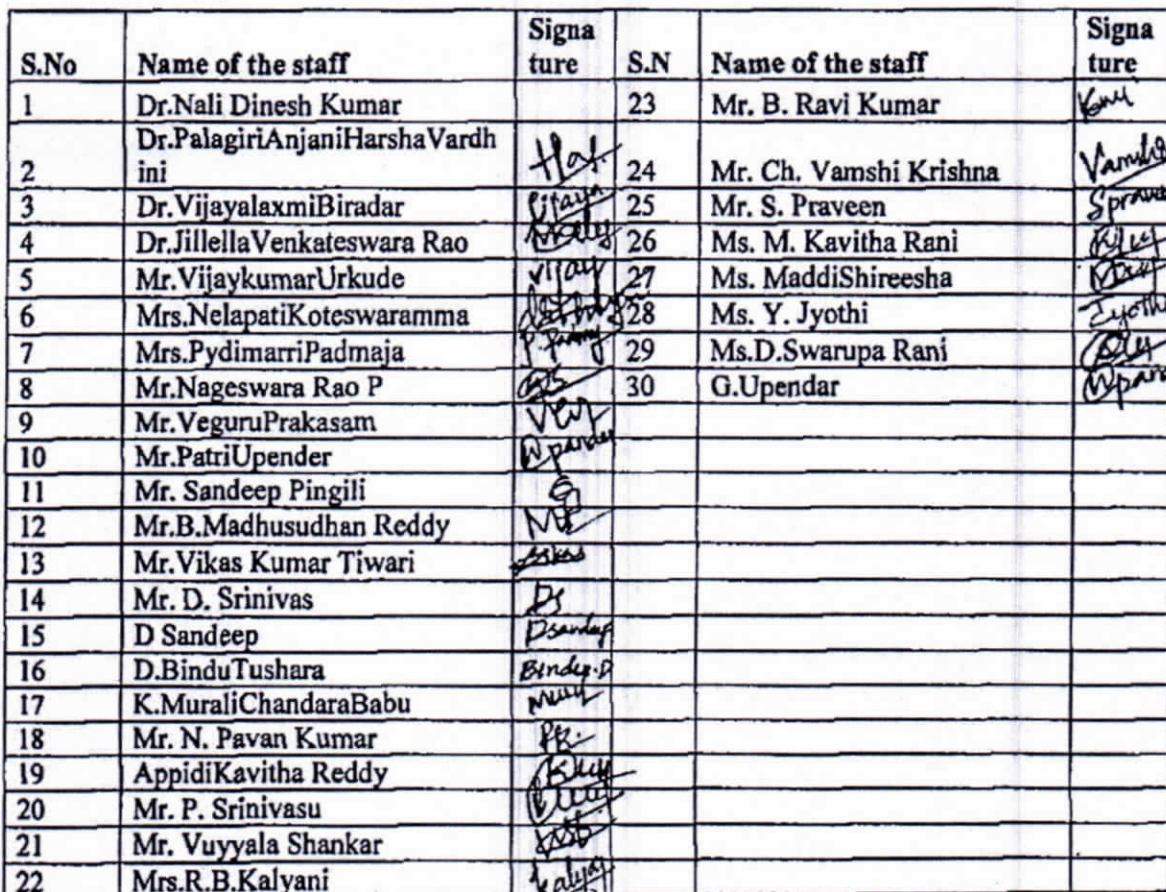 S.No Name of the staff Signa ture S.N Name of the staff Signa ture
1 Dr.Nali Dinesh Kumar 23 Mr. B. Ravi Kumar
2 Dr.PalagiriAnjaniHarshaVardh ini 24 Mr. Ch. Vamshi Krishna
3 Dr.VijayalaxmiBiradar 25 Mr. S. Praveen
4 Dr.JillellaVenkateswara Rao 26 Ms. M. Kavitha Rani
5 Mr.VijaykumarUrkude Vijay 27 Ms. MaddiShireesha
6 Mrs.NelapatiKoteswaramma 28 Ms. Y. Jyothi
7 Mrs.PydimarriPadmaja 29 Ms.D.Swarupa Rani
8 Mr.Nageswara Rao P 30 G.Upendar
9 Mr.VeguruPrakasam
10 Mr.PatriUpender
11 Mr. Sandeep Pingili
12 Mr.B.Madhusudhan Reddy
13 Mr.Vikas Kumar Tiwari
14 Mr. D. Srinivas
15 D Sandeep Dsandeep
16 D.BinduTushara Bindu.D
17 K.MuraliChandaraBabu
18 Mr. N. Pavan Kumar
19 AppidiKavitha Reddy
20 Mr. P. Srinivasu
21 Mr. Vuyyala Shankar
22 Mrs.R.B.Kalyani